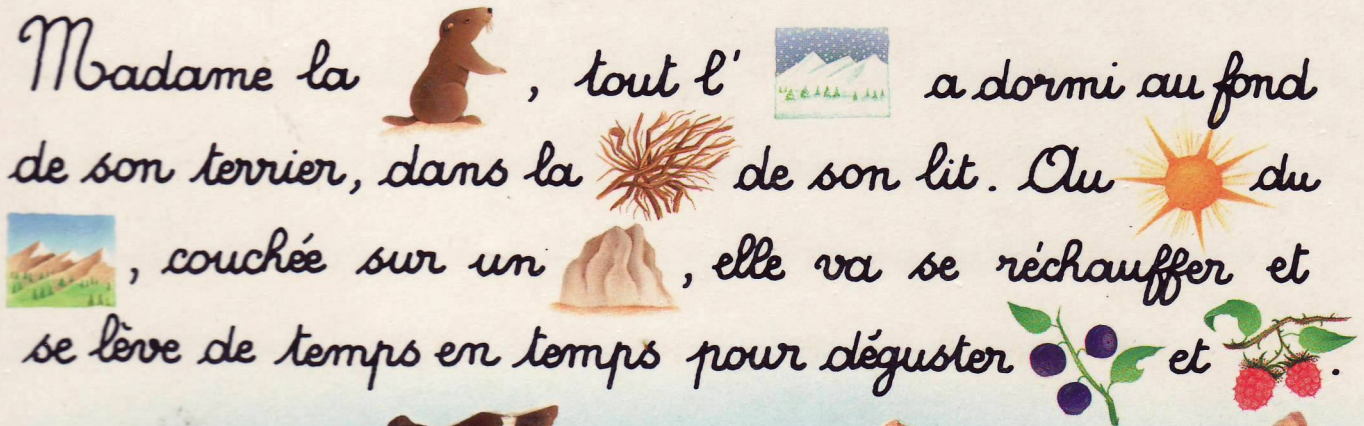 Madame la , tout l' a dormi au fond
de son terrier, dans la de son lit. Au du
, couchée sur un , elle va se réchauffer et
se lève de temps en temps pour déguster et .